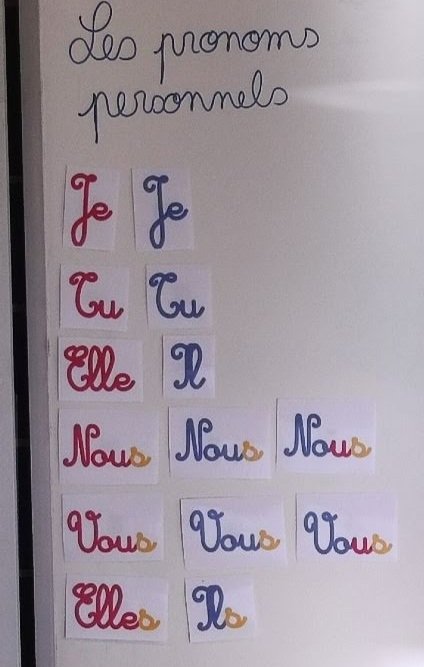 Les pronoms
personnels
Je Je
Tu Tu
Elle Il
Nous Nous Nous
Vous Vous Vous
Elles Ils